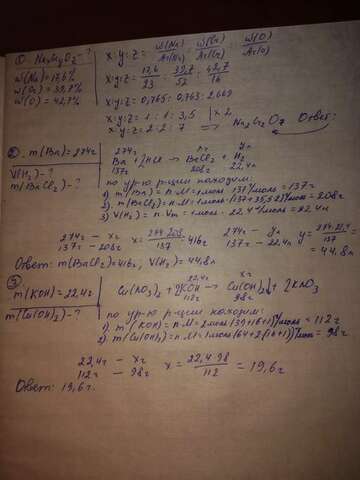 ① NaxCryOz - ?
W(Na) = 17,6%
W(Cr) = 39,7%
W(O) = 42,7%
x:y:z = W(Na)/Ar(Na) : W(Cr)/Ar(Cr) : W(O)/Ar(O)
x:y:z = 17,6/23 : 39,7/52 : 42,7/16
x:y:z = 0,765 : 0,763 : 2,669
x:y:z = 1 : 1 : 3,5 | x 2
x:y:z = 2 : 2 : 7 => Na2Cr2O7 Ответ:
② m(Ba) = 274г
V(H2) - ?
m(BaCl2) - ?
274г xг yл
Ba + 2HCl → BaCl2 + H2
137г 208г 22,4л
по ур-ю р-ции находим:
1) m(Ba) = n·M = 1моль·137г/моль = 137г
2) m(BaCl2) = n·M = 1моль·(137+35,5·2)г/моль = 208г
3) V(H2) = n·Vm = 1моль·22,4л/моль = 22,4л
274г — xг
137г — 208г
x = 274·208/137 = 416г
274г — yл
137г — 22,4л
y = 274·22,4/137 = 44,8л
Ответ: m(BaCl2) = 416г, V(H2) = 44,8л
③ m(KOH) = 22,4г
m(Cu(OH)2) - ?
22,4г xг
Cu(NO3)2 + 2KOH → Cu(OH)2↓ + 2KNO3
112г 98г
по ур-ю р-ции находим:
1) m(KOH) = n·M = 2моль·(39+16+1)г/моль = 112г
2) m(Cu(OH)2) = n·M = 1моль·(64+2(16+1))г/моль = 98г
22,4г — xг
112г — 98г
x = 22,4·98/112 = 19,6г
Ответ: 19,6г.